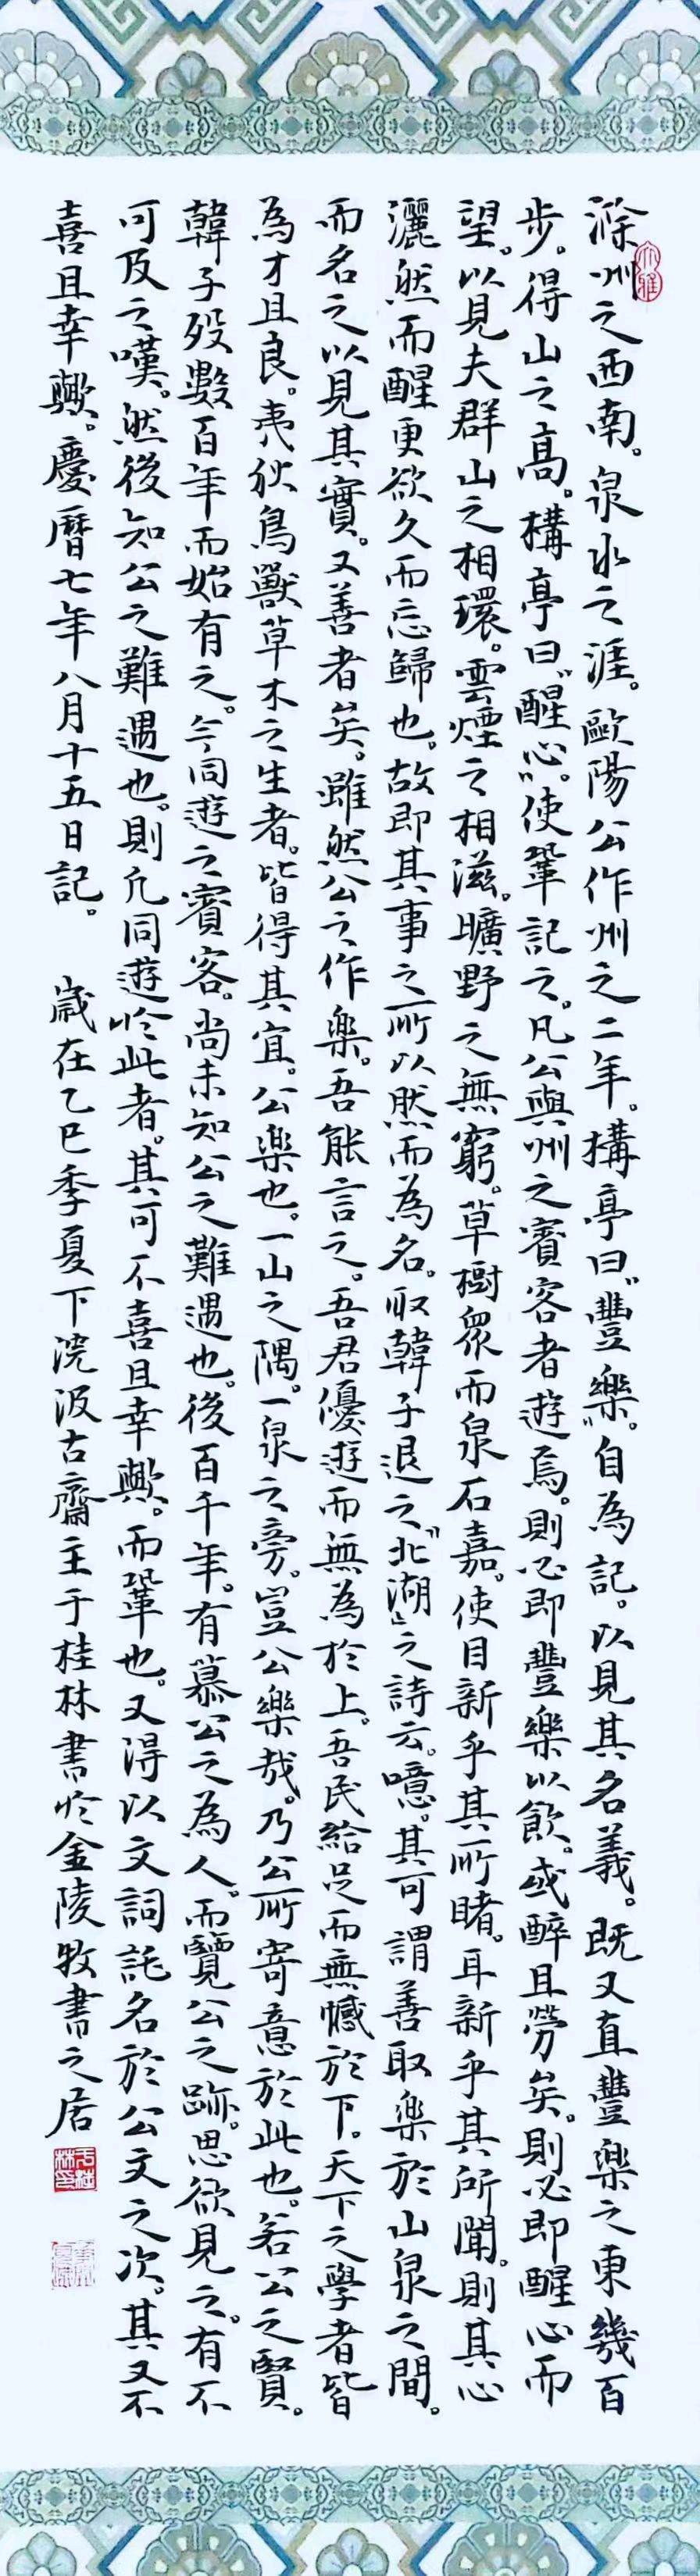 滁州之西南。泉水之涯。歐陽公作州之二年。搆亭曰“豐樂”。自為記。以見其名義。既又直豐樂之東幾百
步。得山之高。構亭曰“醒心”。使鞏記之。凡公與州之賓客者遊焉。則必即豐樂以飲。或醉且勞矣。則必即醒心而
望。以見夫群山之相環。雲煙之相滋。曠野之無窮。草樹眾而泉石嘉。使目新乎其所睹。耳新乎其所聞。則其心
灑然而醒更欲久而忘歸也。故即其事之所以然而為名。取韓子退之“北湖”之詩云。噫。其可謂善取樂於山泉之間。
而名之以見其實。又善者矣。雖然公之作樂。吾能言之。吾君優遊而無為於上。吾民給足而無憾於下。天下之學者皆
為才且良。夷狄鳥獸草木之生者。皆得其宜。公樂也。一山之隅。一泉之旁。豈公樂哉。乃公所寄意於此也。若公之賢。
韓子歿數百年而始有之。今同遊之賓客。尚未知公之難遇也。後百千年。有慕公之為人。而覽公之跡。思欲見之。有不
可及之嘆。然後知公之難遇也。則凡同遊於此者。其可不喜且幸歟。而鞏也。又得以文詞託名於公文之次。其又不
喜且幸歟。慶曆七年八月十五日記。 歲在乙巳季夏下浣汲古齋主于桂林書於金陵牧書之居
大雅